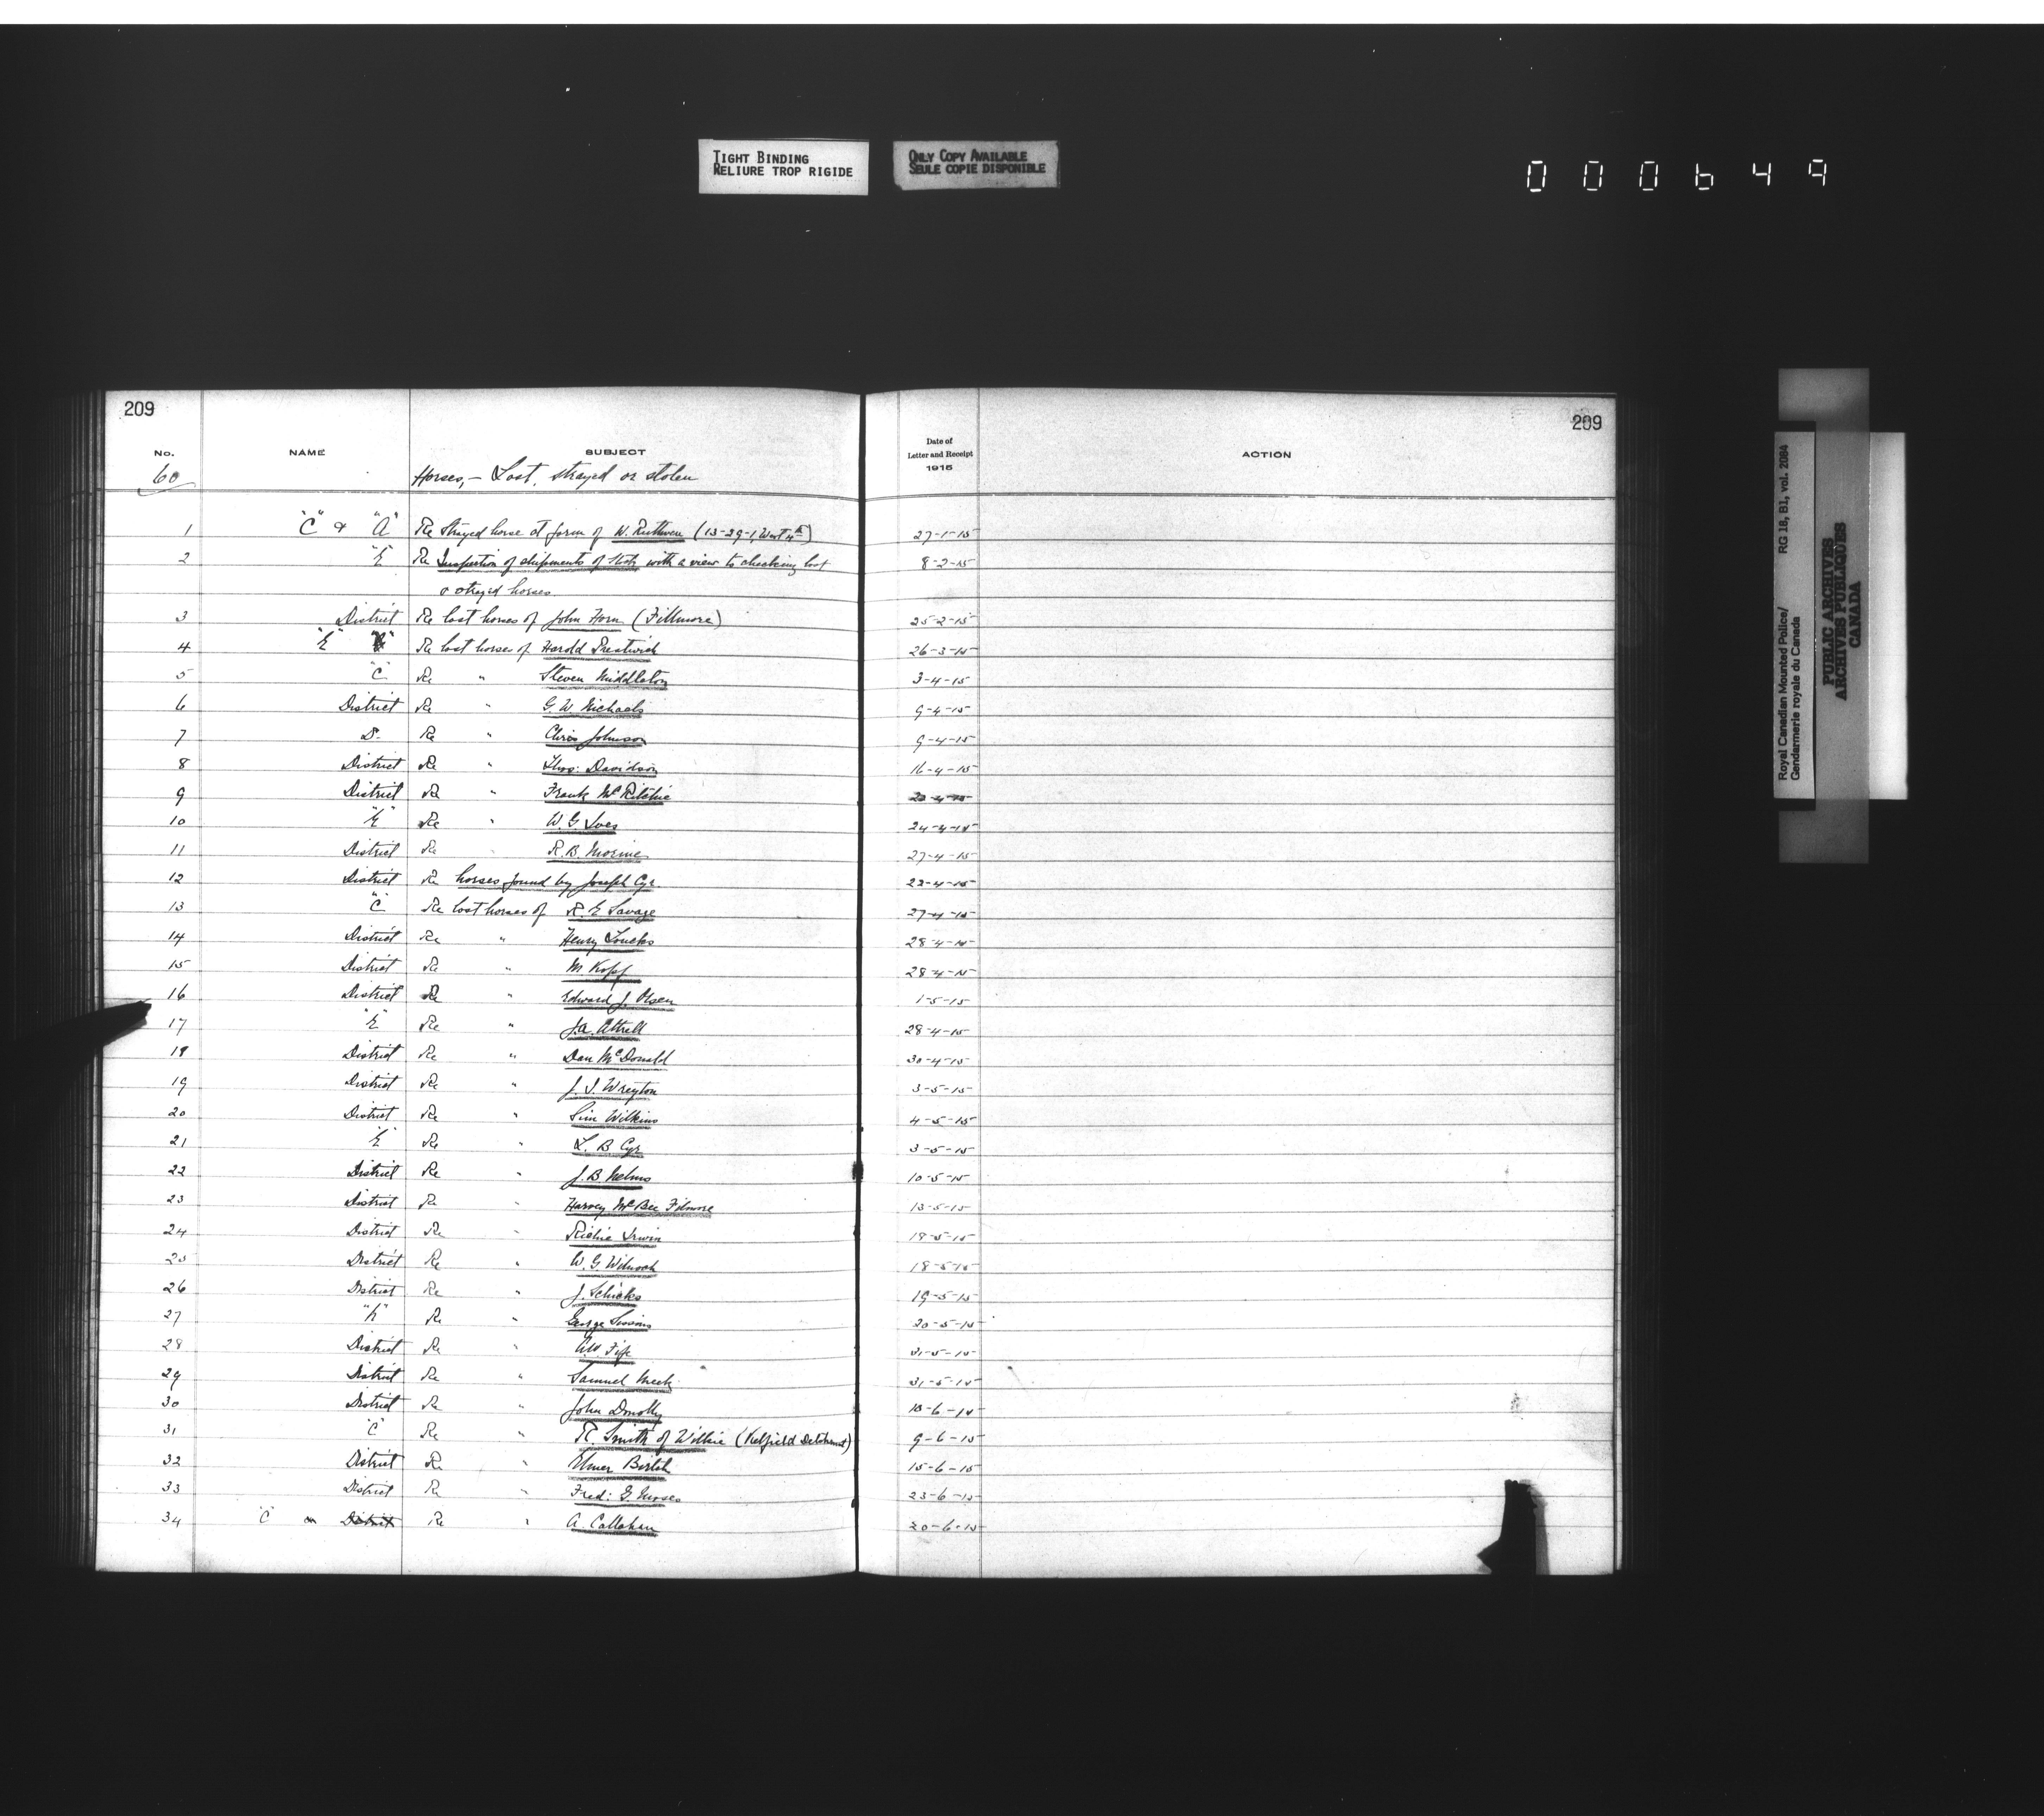 TIGHT BINDING
RELIURE TROP RIGIDE
ONLY COPY AVAILABLE
SEULE COPIE DISPONIBLE
000649
209
209
No. NAME SUBJECT Date of Letter and Receipt 1915 ACTION
60 Horses,- Lost, strayed or stolen
1 "C" & "A" Re Strayed horse at farm of W. Ruthven (13-29-1, West 4th) 27-1-15
2 "E" Re Inspection of shipments of stock with a view to checking lost 8-2-15
o strayed horses
3 District Re lost horses of John Horn (Fillmore) 25-2-15
4 "E" Re lost horses of Harold Prestwich 26-3-15
5 "C" Re " Steven Middleton 3-4-15
6 District Re " G. W. Michaels 9-4-15
7 D. Re " Chris Johnson 9-4-15
8 District Re " Thos: Davidson 16-4-15
9 District Re " Frank McRitchie 20-4-15
10 "E" Re " W. G. Ives 24-4-15
11 District Re " R. B. Morine 27-4-15
12 District Re horses found by Joseph Cyr. 22-4-15
13 "C" Re lost horses of R. E Savage 27-4-15
14 District Re " Henry Loucks 28-4-15
15 District Re " M. Kopf 28-4-15
16 District Re " Edward J. Olsen 1-5-15
17 "E" Re " J.A. Attrell 28-4-15
18 District Re " Dan McDonald 30-4-15
19 District Re " J. I. Wreyton 3-5-15
20 District Re " Sim Wilkins 4-5-15
21 "E" Re " L. B. Cyr 3-5-15
22 District Re " J. B. Nelms 10-5-15
23 District Re " Harvey McBee Filmore 13-5-15
24 District Re " Richie Irwin 18-5-15
25 District Re " W. G. 18-5-15
26 District Re " J. Schicks 19-5-15
27 "K" Re " George Sissons 20-5-15
28 District Re " A.W. Fife 31-5-15
29 District Re " Samuel Meek 31-5-15
30 District Re " John Donolly 10-6-15
31 "C" Re " R. Smith of Wilkie (Kelfield Detchment) 9-6-15
32 District Re " Elmer Bertch 15-6-15
33 District Re " Fred: G. Morses 23-6-15
34 "C" District Re " A. Callahan 20-6-15
Royal Canadian Mounted Police/ RG 18, B1, vol. 2084
Gendarmerie royale du Canada
PUBLIC ARCHIVES
ARCHIVES PUBLIQUES
CANADA